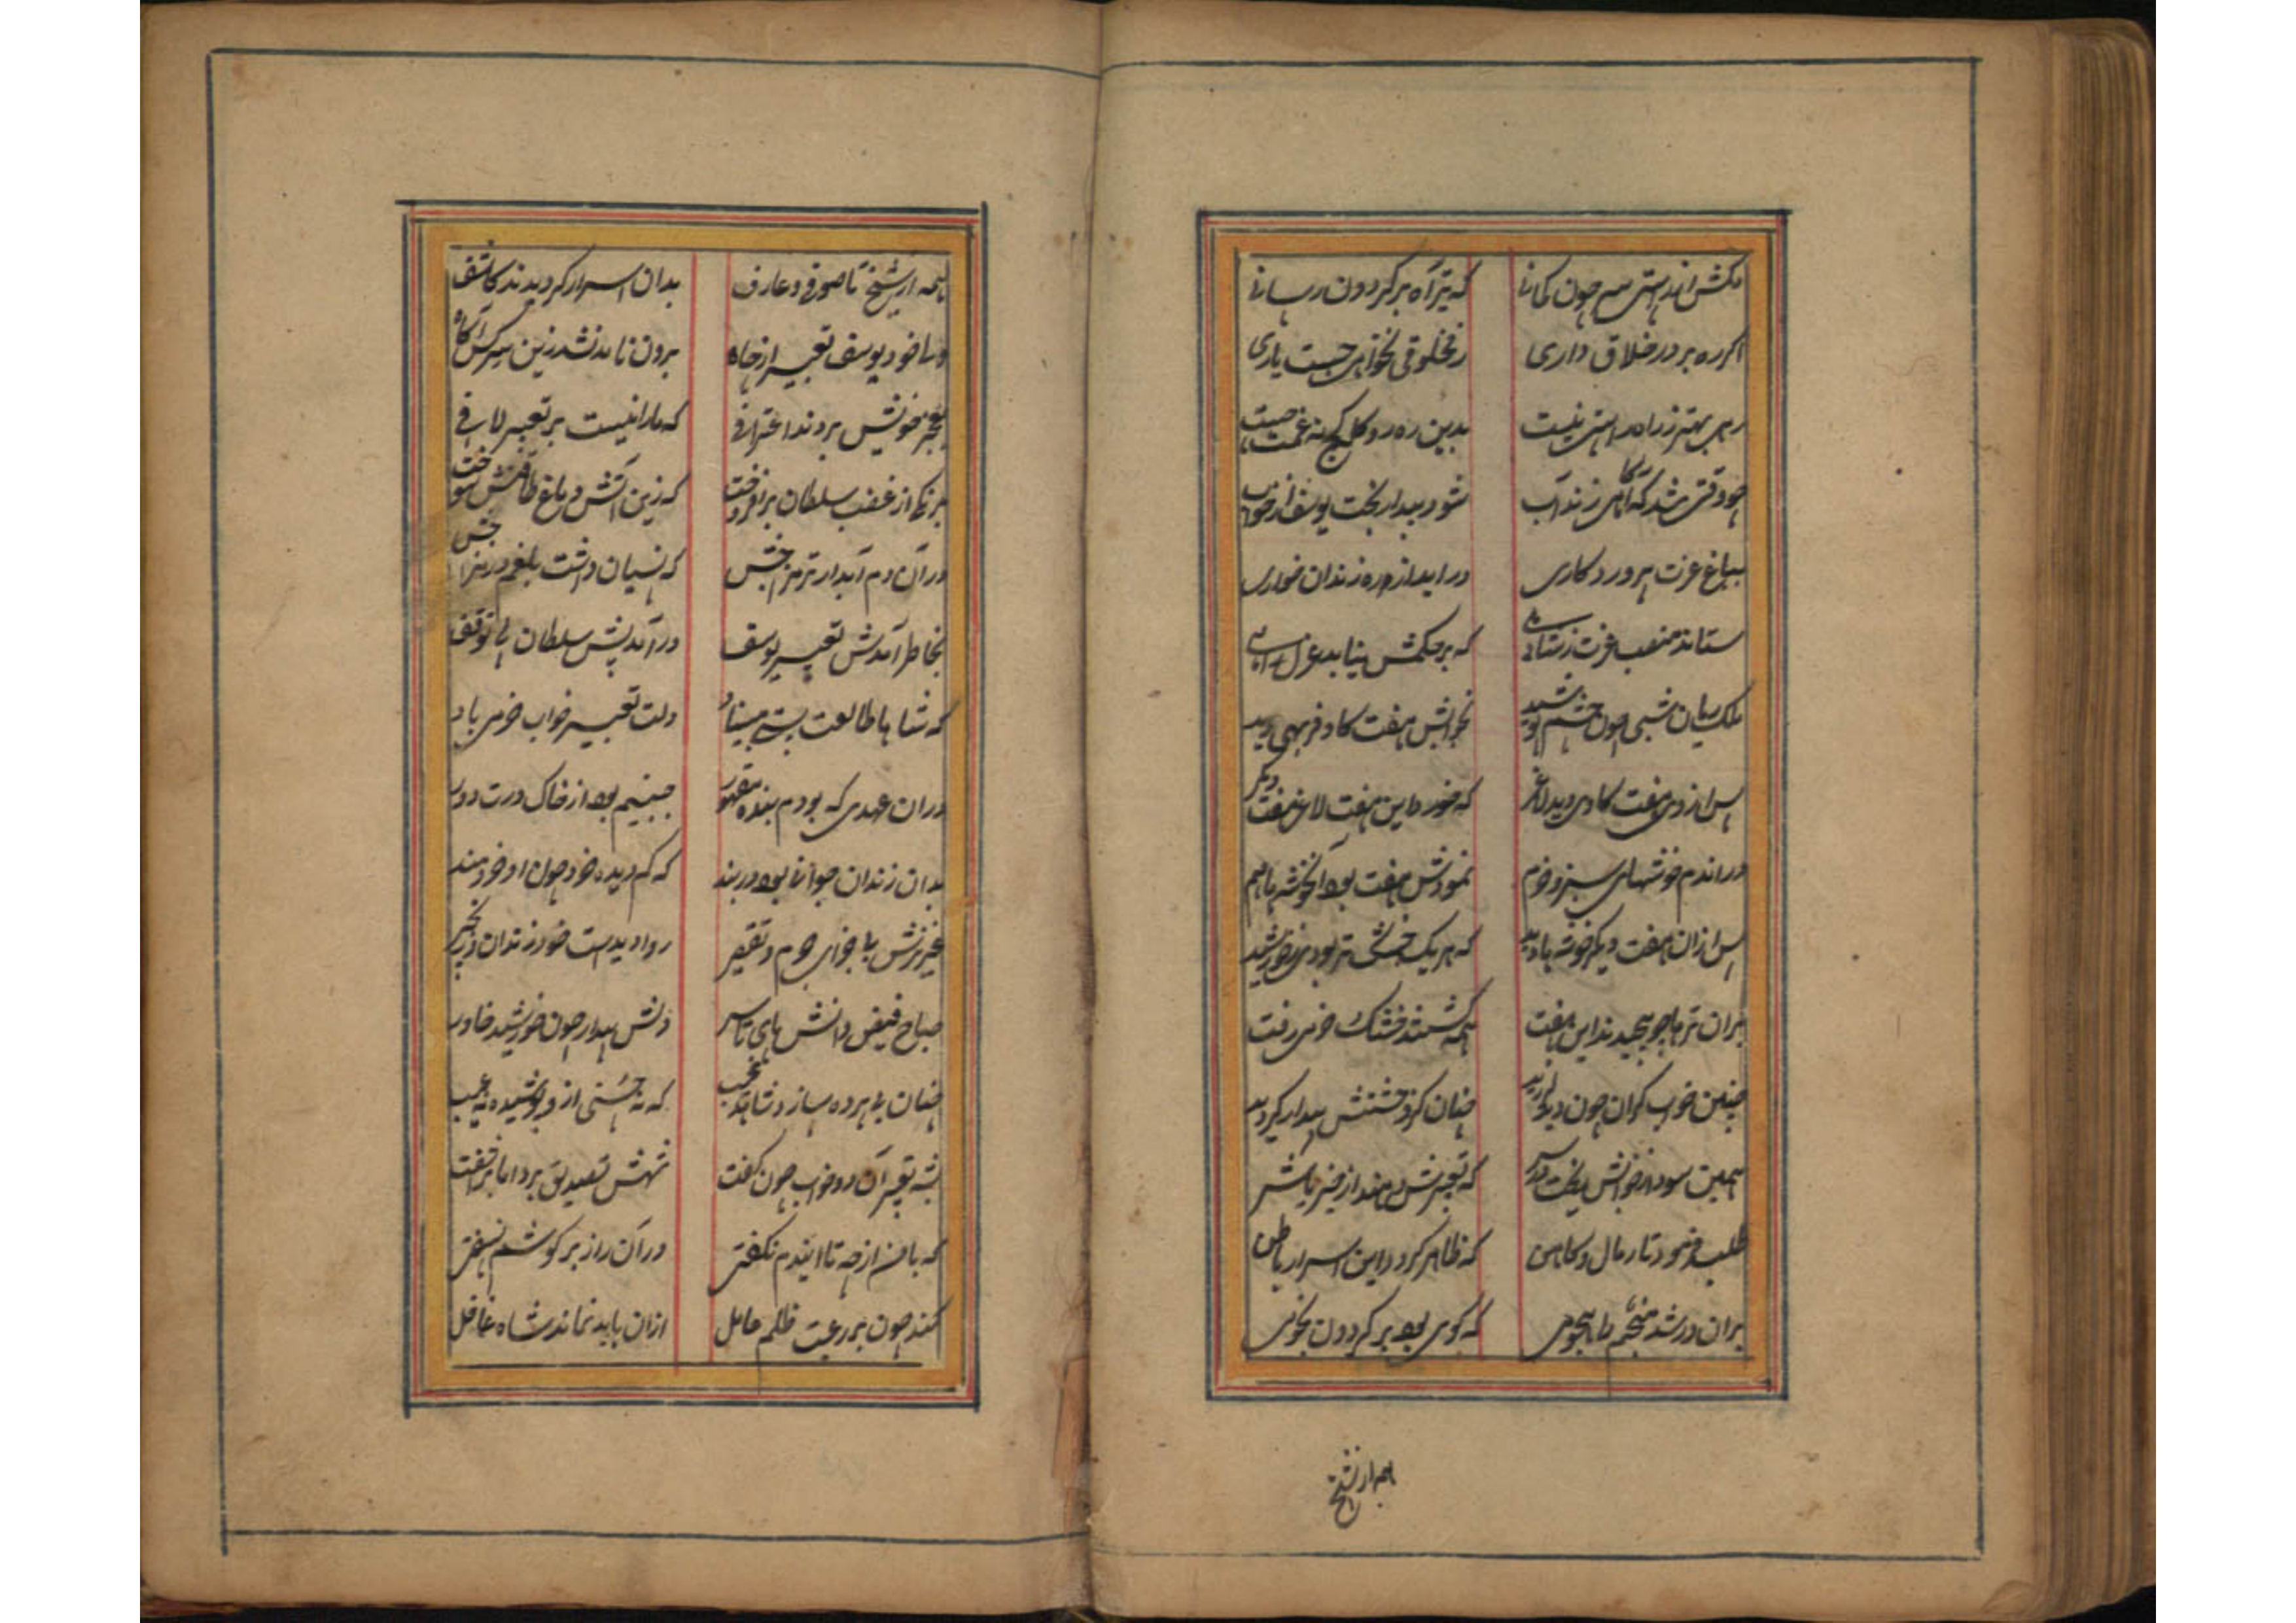 مکش اندر پستی سر چون کمانی که تیر آه بر گردون رسانی
اگر ره بر در خلاق داری ز مخلوقی نخواهی جست یاری
رهی بهتر ز راه راستی نیست بدین ره رو
چو وقتی شد که آب شود بیدار بخت یوسف از خواب
بباغ عزت پروردکاری در اید از در زندان خواری
ستاند منصب عزت که بر حکمش نیابد عزل
ملک ریان شبی چون چشم پوشید بخوابش هفت کاو فربهی دید
پس از وی هفت کاوی دید لاغر که خورد این هفت لاغر هفت دیگر
در اندم خوشهای سبز و خرم نمودش هفت بود آنخوشه با هم
پس ازان هفت دیگر خوشه با دید که هر یک خشک تر بودی ز خورشید
بران تر ها چو پیچیدند این هفت همه گشتند خشک خرمی رفت
چنین خواب گران چون دید چنان کز وحشتش بیدار کردید
همین سود از خوابش که تعبیرش دهند از خیر یا شر
طلب فرمود تا رمال و کاهن که ظاهر کردد این اسرار باطن
بران در شد منجم با هجومی که کوی بود بر کردون نجومی
همه از شیخ
همه از شیخ تا صوفی و عارف بدان اسرار کردیدند کاشف
ولی خود یوسف تعبیر از چاه برون نامد نشد زین سر کس آکاه
بعجز خویش بردند اعترافی که ما را نیست بر تعبیر لافی
برنکی از غضب سلطان برافروخت که زین آتش دماغ طاقتش سوخت
در آن دم آبدار که نسیان داشت
بخاطر آمدش تعبیر یوسف در آمد پیش سلطان بی توقف
که شاها طالعت پستی مبیناد دلت تعبیر خواب خرمی باد
دران عهدی که بودم بنده مقهور جبینم بود از خاک درت دور
بدان زندان جوانی بود در بند که کم دیده خرد چون او خردمند
عزیزش با جزای جرم و تقصیر روا دیدست خود زندان و زنجیر
صباح فیض دانش های دلش بیدار چون خورشید خاور
چنان بی پرده سازد شاهد غیب که نه حسنی ازو پوشیده نه عیب
بشه تعبیر آن دو خواب چون گفت شهش تصدیق برد اما برآشفت
که با من از چه تا ایندم نکفتی در آن راز بر کوشم نسفتی
کند چون بر رعیت ظلم عامل ازان باید نماند شاه غافل